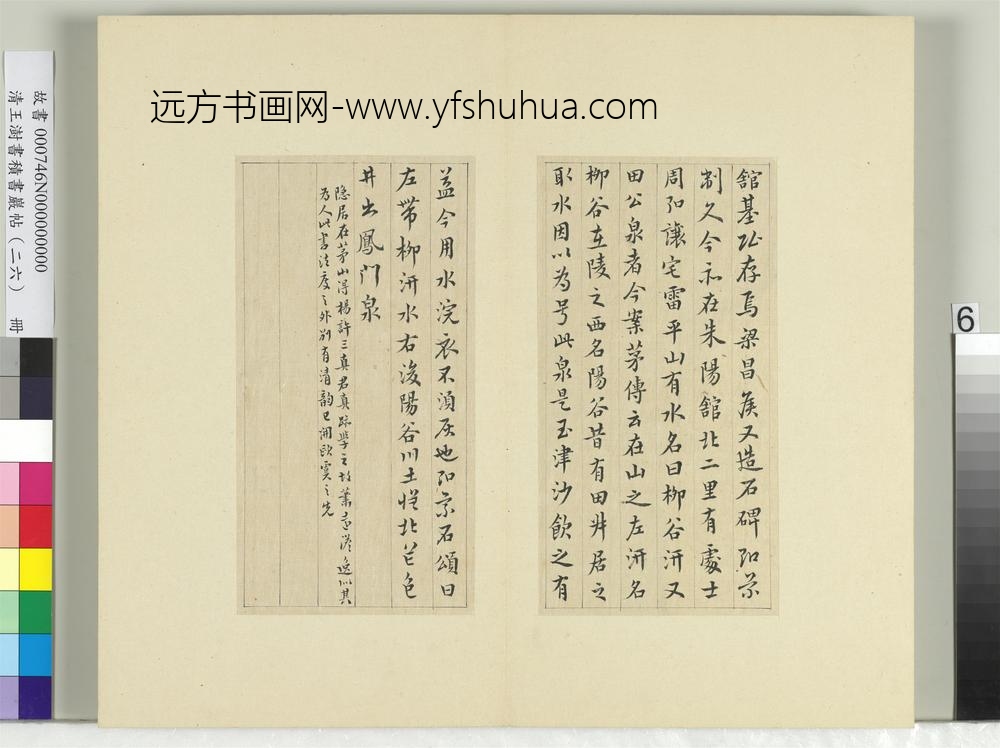 远方书画网-www.yfshuhua.com
故書 000746N000000000
清王澍書積書巖帖（二六） 冊
6
舘基址存焉梁昌侯又造石碑弘景
制文今立在朱陽舘北二里有處士
周弘讓宅雷平山有水名曰柳谷汧又
田公泉者今案茅傳云在山之左汧名
柳谷在陵之西名陽谷昔有田井居之
取水因以為号此泉是玉津沙飲之有
益今用水浣衣不湏灰也弘景石頌曰
左帶柳汧水右浚陽谷川土
北芒色
井出鳳門泉
隐居在茅山得楊許三真君真跡學之故蕭遠澹逸以其
為人此書法度之外別有清韵已開歐虞之先